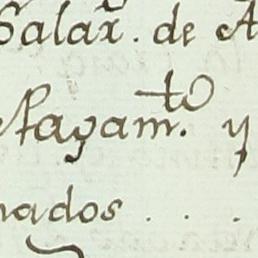 Salar. de A
Raçam.to y
nados . . .